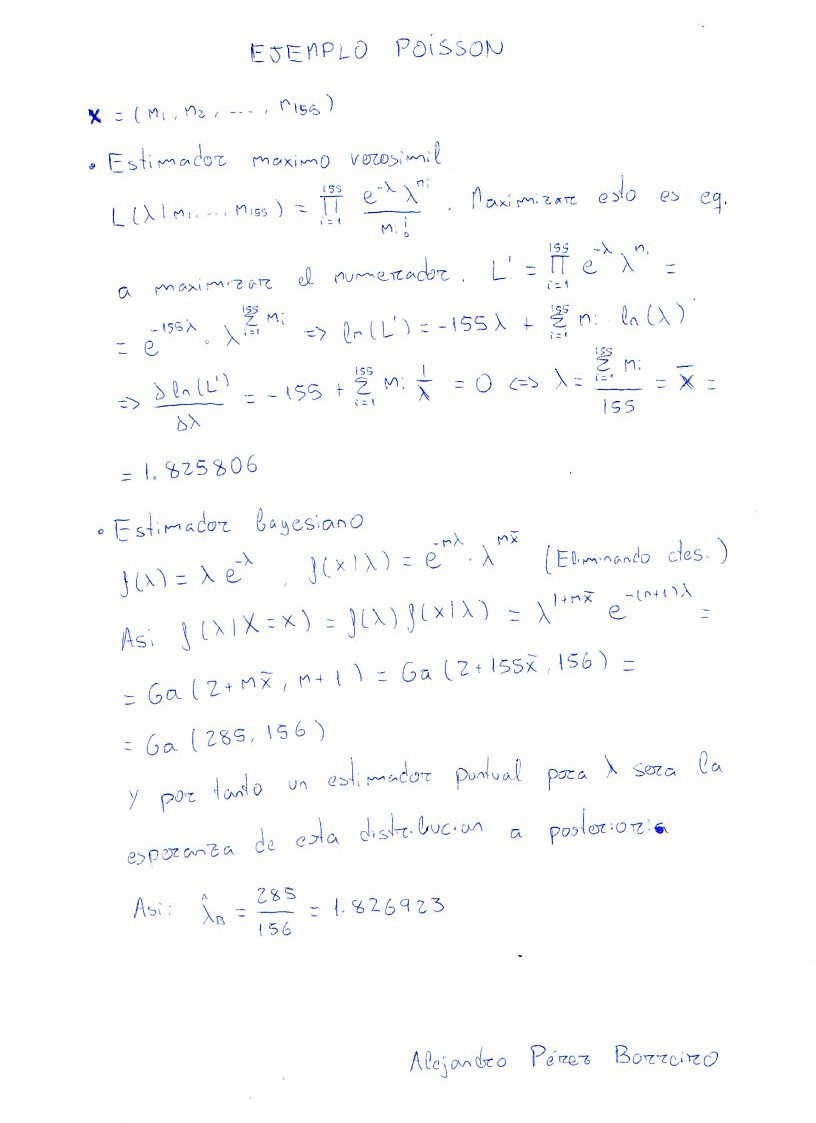 EJEMPLO POISSON
X = (n₁, n₂, ..., n₁₅₅)
• Estimador maximo verosimil
L(λ|n₁, ..., n₁₅₅) = ∏_{i=1}^{155} e^{-λ} λ^{nᵢ} / nᵢ! . Maximizar esto es eq.
a maximizar el numerador. L' = ∏_{i=1}^{155} e^{-λ} λ^{nᵢ} =
= e^{-155λ} · λ^{∑_{i=1}^{155} nᵢ} => ln(L') = -155λ + ∑_{i=1}^{155} nᵢ · ln(λ)
=> ∂ln(L')/∂λ = -155 + ∑_{i=1}^{155} nᵢ 1/λ = 0 <=> λ = ∑_{i=1}^{155} nᵢ / 155 = x̄ =
= 1.825806
• Estimador bayesiano
f(λ) = λ e^{-λ} , f(x|λ) = e^{-nλ} · λ^{nx̄} (Eliminando ctes.)
Asi f(λ|X=x) = f(λ) f(x|λ) = λ^{1+nx̄} e^{-(n+1)λ} =
= Ga(2+nx̄, n+1) = Ga(2+155x̄, 156) =
= Ga(285, 156)
Y por tanto un estimador puntual para λ sera la
esperanza de esta distribucion a posteriori.
Asi: λ̂_B = 285/156 = 1.826923
Alejandro Pérez Barreiro